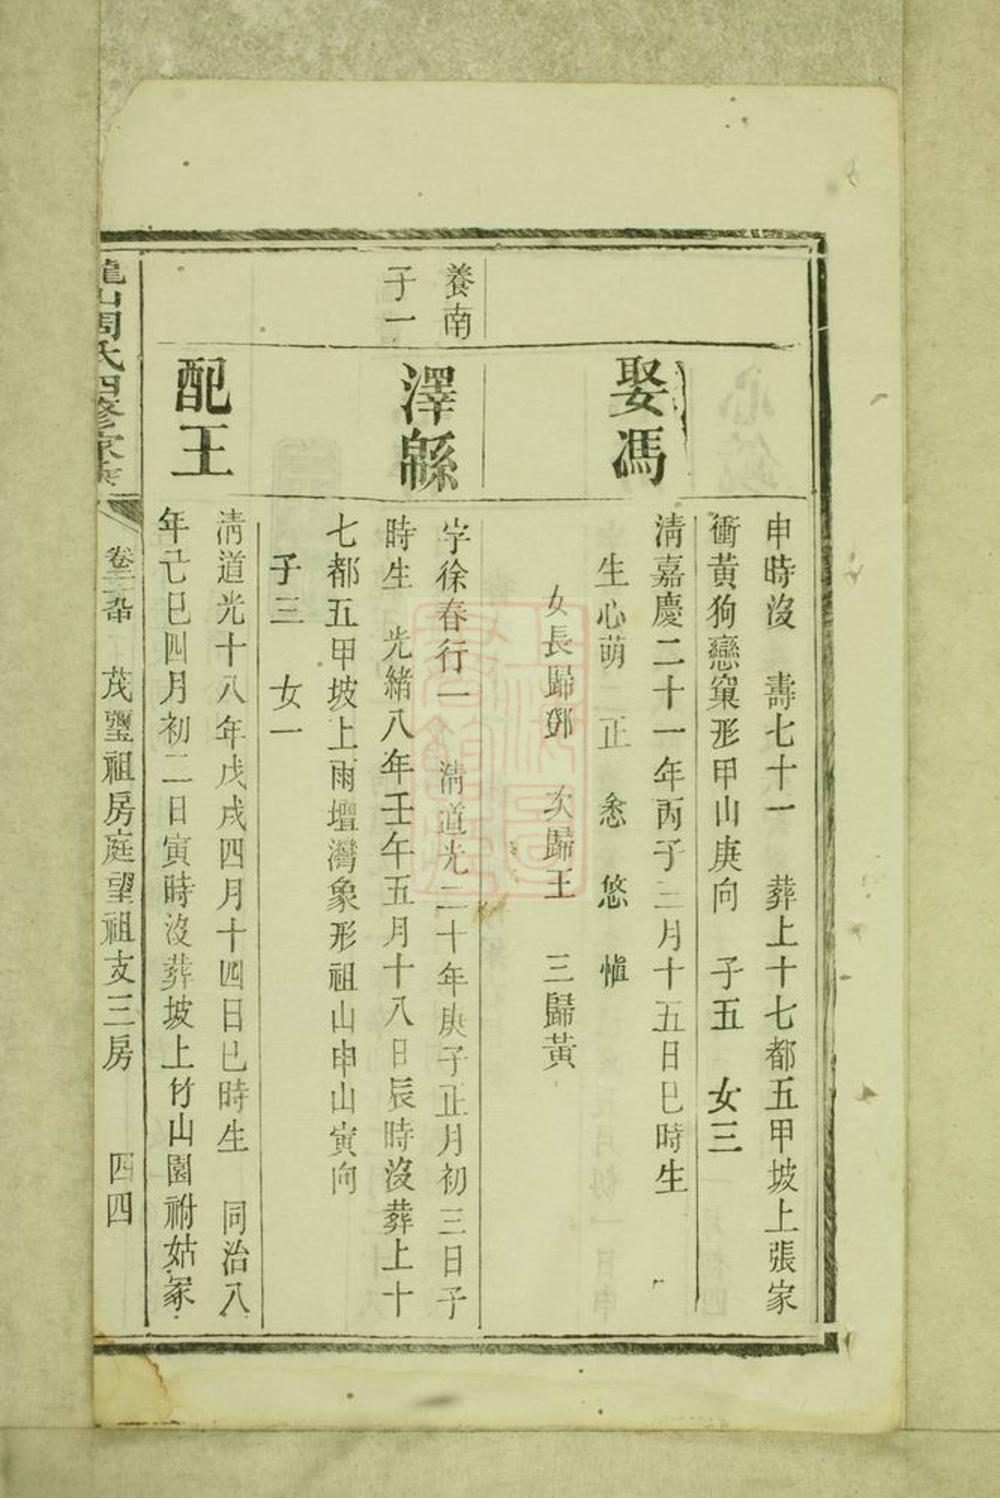 申時沒　壽七十一　葬上十七都五甲坡上張家
衝黃狗戀窠形甲山庚向　子五　女三
娶馮
清嘉慶二十一年丙子三月十五日巳時生
生心萌　正　悆　悠　愼
女長歸鄧　次歸王　三歸黃
養南
子一
澤緜
字徐春行一　清道光二十年庚子正月初三日子
時生　光緒八年壬午五月十八日辰時沒葬上十
七都五甲坡上雨壇灣象形祖山申山寅向
子三　女一
配王
清道光十八年戊戌四月十四日巳時生　同治八
年己巳四月初二日寅時沒葬坡上竹山園祔姑冢
龍山周氏四修家
茂璽祖房庭望祖支三房　四四